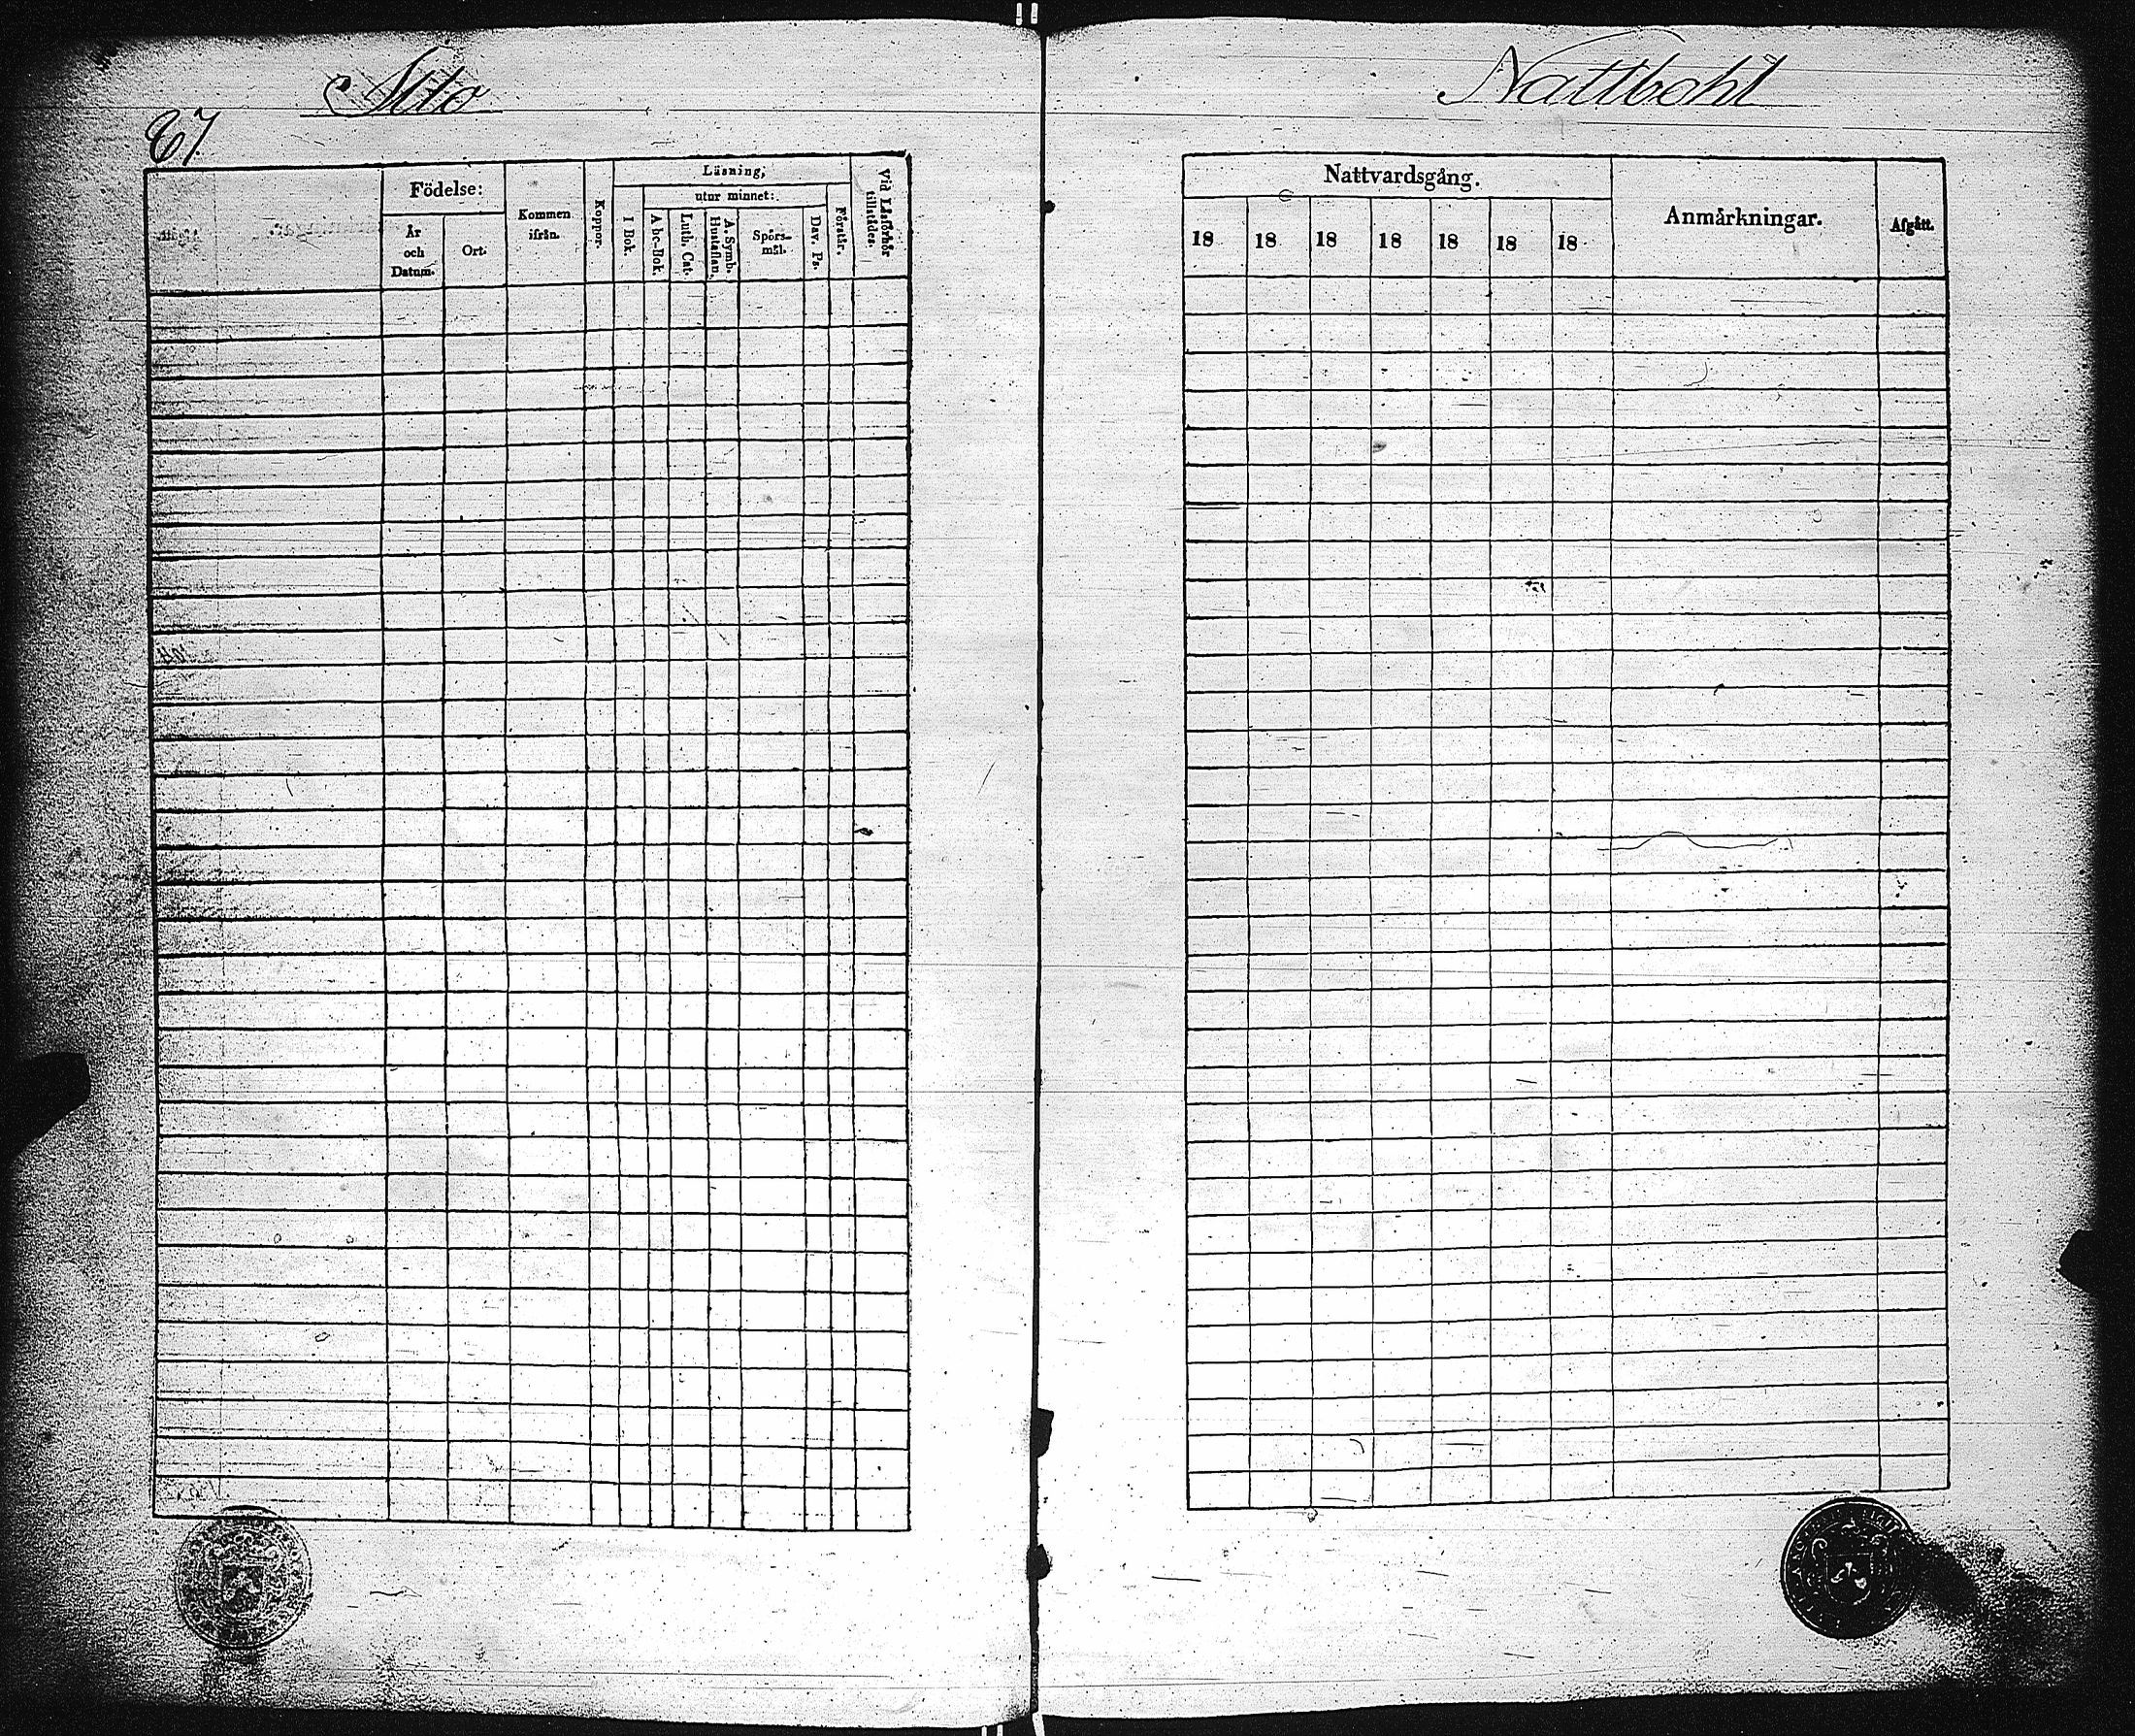 Nattbohl
67
Födelse:
År
och
Datum.
Ort.
Kommen
ifrån.
Koppor.
Läsning,
utur minnet:
I Bok.
A bc-Bok.
Luth. Cat.
A. Symb.
Hustaflan.
Spörs-
mål.
Dav. Ps.
Förstår.
Vid Läsförhör
tillstädes.
Nattvardsgång.
18 18 18 18 18 18 18
Anmärkningar.
Afgått.